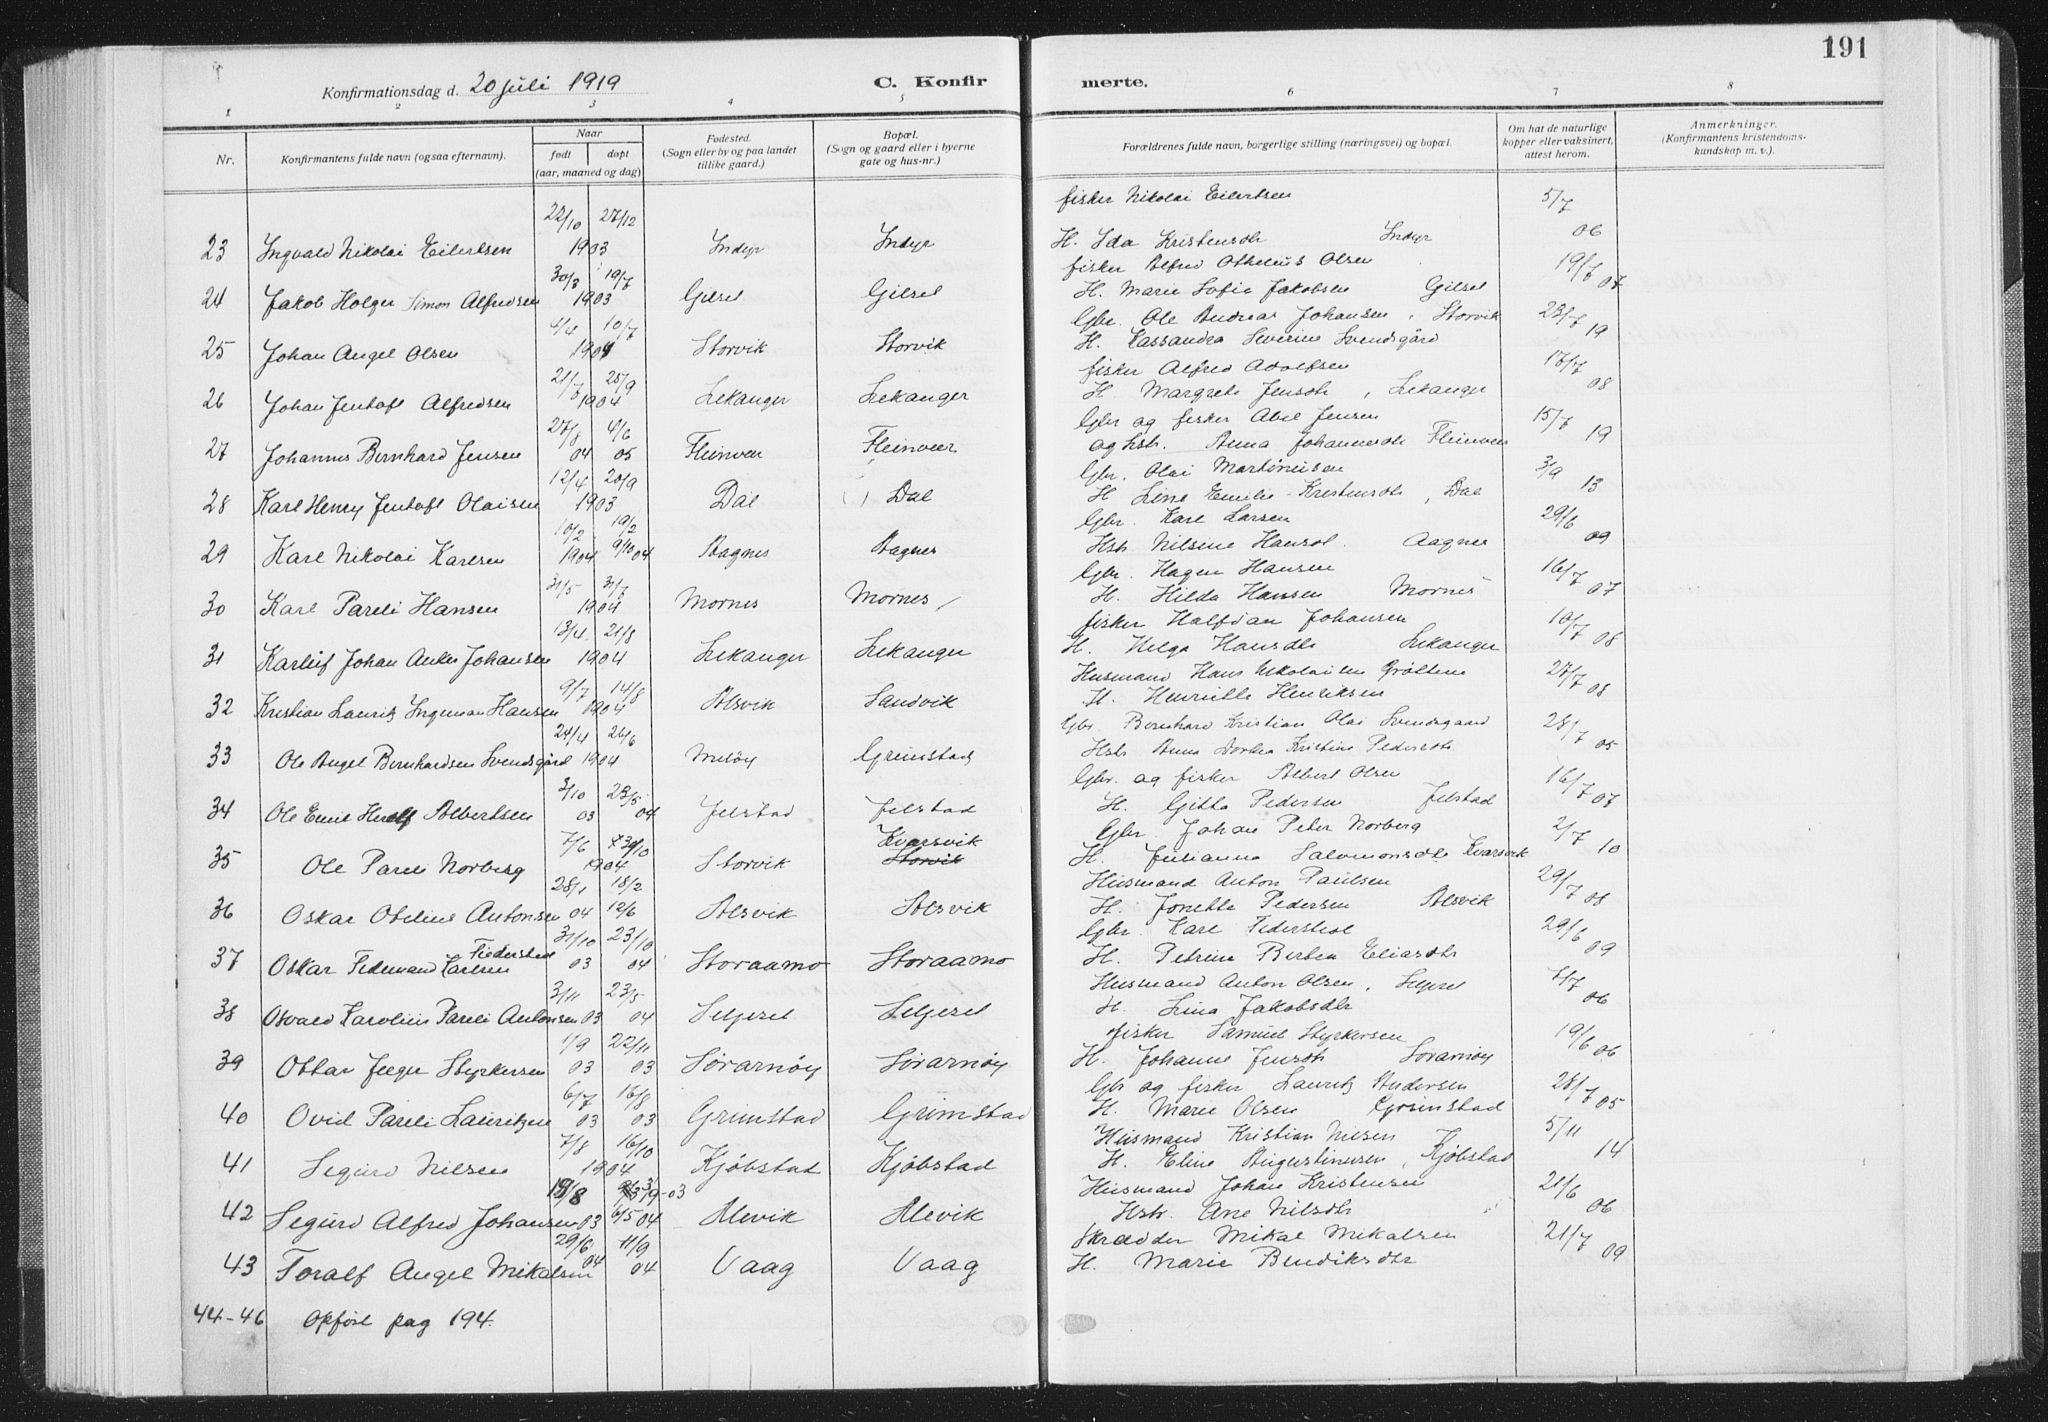 191
Konfirmationsdag d. 20 juli 1919 C. Konfir merte.
1 2 3 4 5 6 7 8
Nr. Konfirmantens fulde navn (ogsaa efternavn). Naar født døpt (aar, maaned og dag) Fødested. (Sogn eller by og paa landet tillike gaard.) Bopæl. (Sogn og gaard eller i byerne gate og hus-nr.) Forældrenes fulde navn, borgerlige stilling (næringsvei) og bopæl. Om hat de naturlige kopper eller vaksinert, attest herom. Anmerkninger. (Konfirmantens kristendoms-kundskap m. v.).
22/10 27/12 fisker Nikolai Eilertsen 5/7
23 Ingvald Nikolai Eilertsen 1903 Indyr Indyr H. Ida Kristensdtr Indyr 06
30/3 19/7 fisker Alfred Othelius Olsen 19/7
24 Jakob Holger Simon Alfredsen 1903 Gilset Gilset H. Marie Sofie Jakobsen Gilset 07
4/4 10/7 Gbr. Ole Andreas Johansen, Storvik
25 Johan Angel Olsen 1904 Storvik Storvik H. Kassandra Severine Svendsgård 19
21/3 25/9 fisker Alfred Adolfsen 17/7
26 Johan Jentoft Alfredsen 1904 Lekanger Lekanger H. Margrete Jensdtr, Lekanger 08
27/8 4/6 Gbr og fisker Abel Jensen 15/7
27 Johannes Bernhard Jensen 04 05 Fleinvær Fleinvær og hstr. Anna Johannesdtr Fleinvær 19
12/4 20/9 Gbr. Olai Martinusen 3/9
28 Karl Henry Jentoft Olaisen 1903 Dal Dal H Line Emilie Kristensdtr, Dal 13
10/2 19/2 Gbr. Karl Larsen 29/6
29 Karl Nikolai Karlsen 1904 9/10 04 Aagnes Aagnes Hstr Nilsine Hansd. Aagnes 09
31/5 31/7 Gbr. Hagen Hansen 16/7
30 Karl Pareli Hansen 1904 Mornes Mornes H. Hilda Hansen Mornes 07
13/4 21/8 fisker Halfdan Johansen 10/7
31 Karleif Johan Anker Johansen 1904 Lekanger Lekanger H. Helga Hansdtr Lekanger 08
9/7 14/8 Husmand Hans Nikolaisen Grøttene 27/7
32 Kristian Lauritz Ingeman Hansen 1904 Alsvik Sandvik H. Henriette Henriksen 08
24/4 26/6 Gbr. Bernhard Kristian Olai Svendsgaard 28/7
33 Ole Angel Bernhardsen Svendsgård 1904 Meløy Grimstad Hstr Anna Dorthea Kristine Pedersdtr 05
3/10 23/5 Gbr. og fisker Albert Olsen 16/7
34 Ole Emil Herolf Albertsen 03 04 Jelstad Jelstad H. Gitta Pedersen Jelstad 07
7/6 30/10 Kvarsvik Gbr. Johan Peter Norberg 2/7
35 Ole Pareli Norberg 1904 Storvik Storvik H. Julianna Salomonsdtr Kvarsvik 10
28/1 18/2 Husmand Anton Paulsen 29/7
36 Oskar Otelius Antonsen 04 12/6 Alsvik Alsvik H. Jonette Pedersen Alsvik 08
31/10 23/10 Gbr. Karl Federsheil 29/6
37 Oskar Fedinand Karlsen 03 04 Storaamo Storaamo H. Petrine Bertea Eliasdtr 09
3/11 23/5 Husmand Anton Olsen,
38 Osvald Karolius Pareli Antonsen 03 04 Selgeset Selgeset H. Lina Jakobsdtr 06
1/9 22/11 fisker Samuel Styrkersen 19/6
39 Ottar Jeger Styrkersen 03 03 Sørarnøy Sørarnøy H. Johanne Jensdtr Sørarnøy 06
6/7 16/8 Gbr og fisker Lauritz Andersen 28/7
40 Ovid Pareli Lauritzen 03 03 Grimstad Grimstad H. Marie Olsen Grimstad 05
7/8 16/10 Husmand Kristian Nilsen 5/11
41 Sigurd Nilsen 1904 Kjøbstad Kjøbstad H. Eline Augustinusen, Kjøbstad 14
Husmand Johan Kristensen 21/6
42 Sigurd Alfred Johansen 03 6/5 04 Alevik Alevik Hstr. Ane Nilsdtr 06
29/6 11/9 Skrædder Mikal Mikalsen 21/7
43 Toralf Angel Mikalsen 04 04 Vaag Vaag H. Marie Bendiksdtr 09
44-46 Opført pag 194.